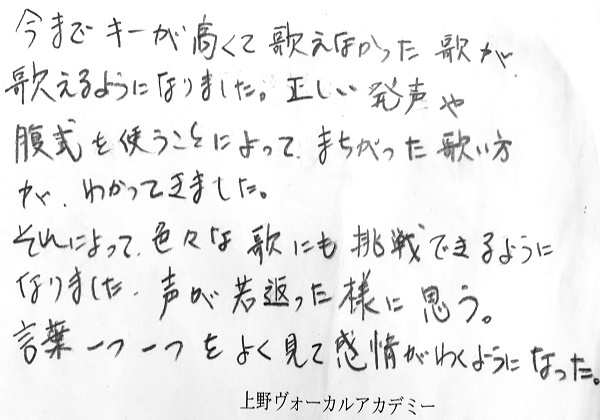 今までキーが高くて歌えなかった歌が、
歌えるようになりました。正しい発声や
腹式を使うことによって、まちがった歌い方
が、わかってきました。
それによって、色々な歌にも挑戦できるように
なりました、声が若返った様に思う。
言葉一つ一つをよく見て感情がわくようになった。
上野ヴォーカルアカデミー